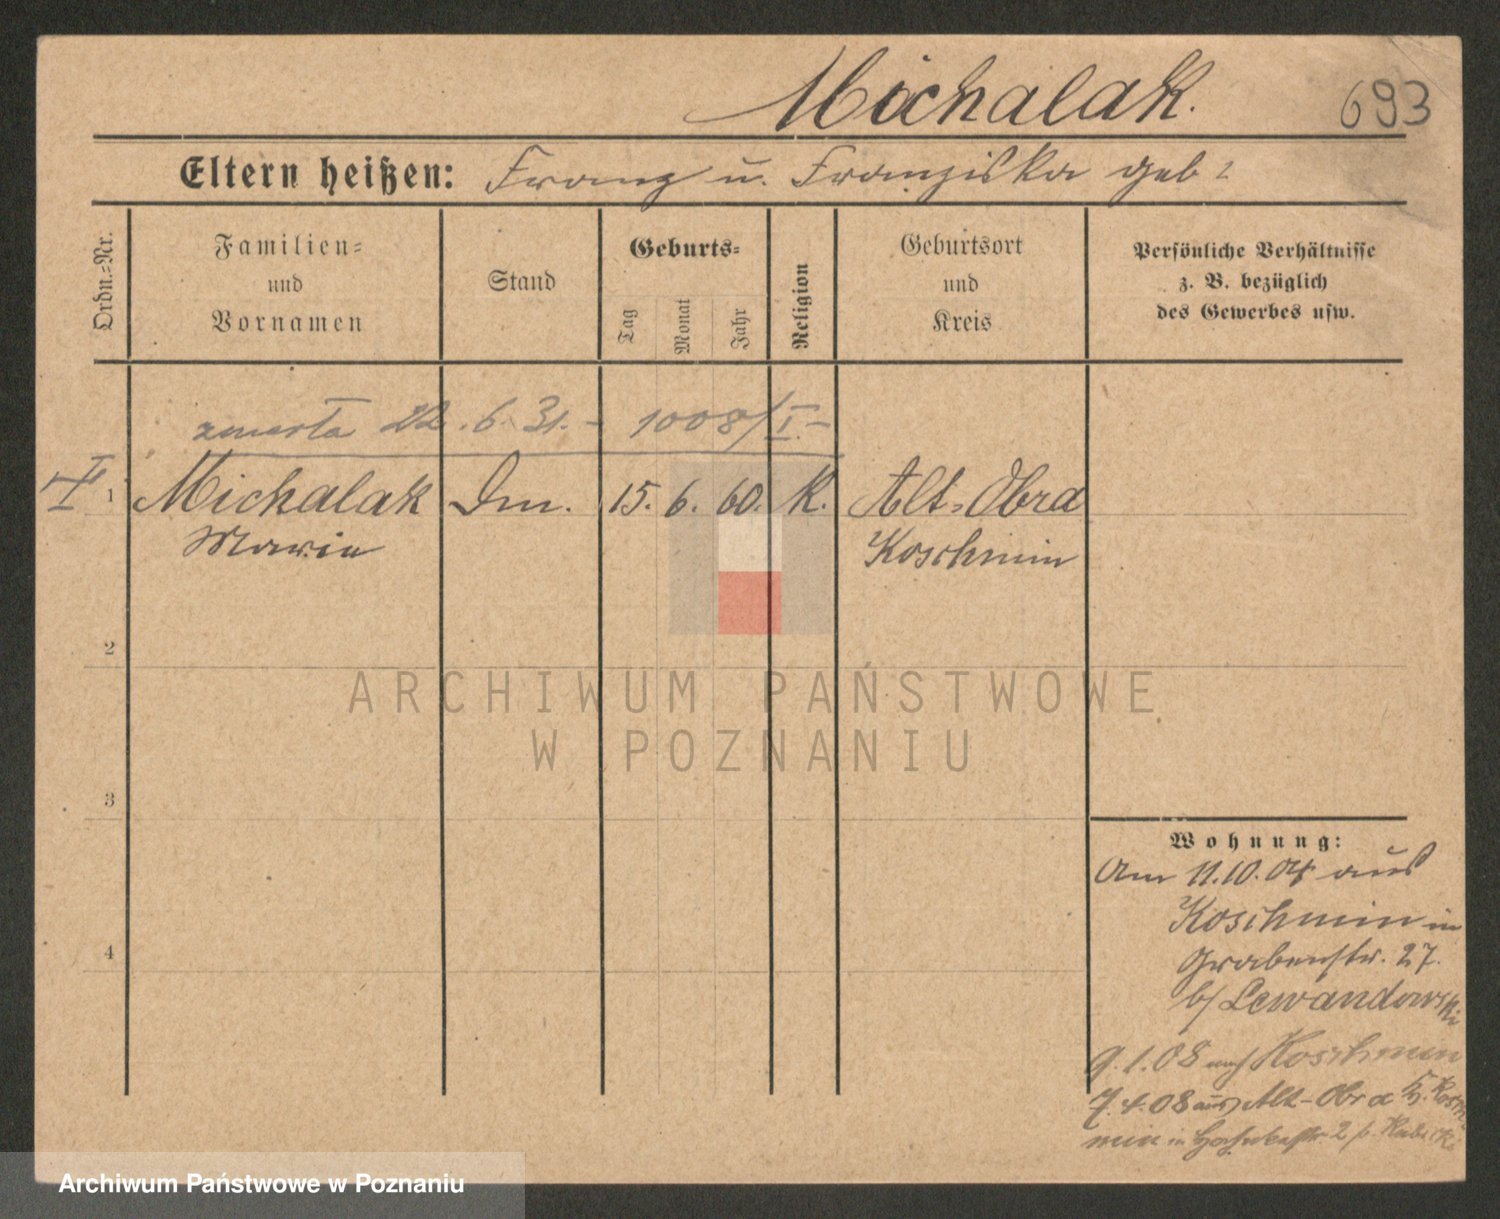 Michalak.
693
Eltern heißen: Franz u. Franziska geb ?
Ordn.=Nr.
Familien=
und
Vornamen
Stand
Geburts=
Tag
Monat
Jahr
Religion
Geburtsort
und
Kreis
Persönliche Verhältnisse
z. B. bezüglich
des Gewerbes usw.
zmarła 22.6.31.- 1008/I.-
1 Michalak Dm. 15. 6. 60. K. Alt=Obra
Marie Koschmin
2
3
4
ARCHIWUM PAŃSTWOWE
W POZNANIU
Wohnung:
Am 11.10.04 aus
Koschmin in
Grabenstr. 27.
b/ Lewandowski
9.1.08 nach Koschmin
7.4.08 aus Alt-Obra K. Kosch
min in 2
Archiwum Państwowe w Poznaniu